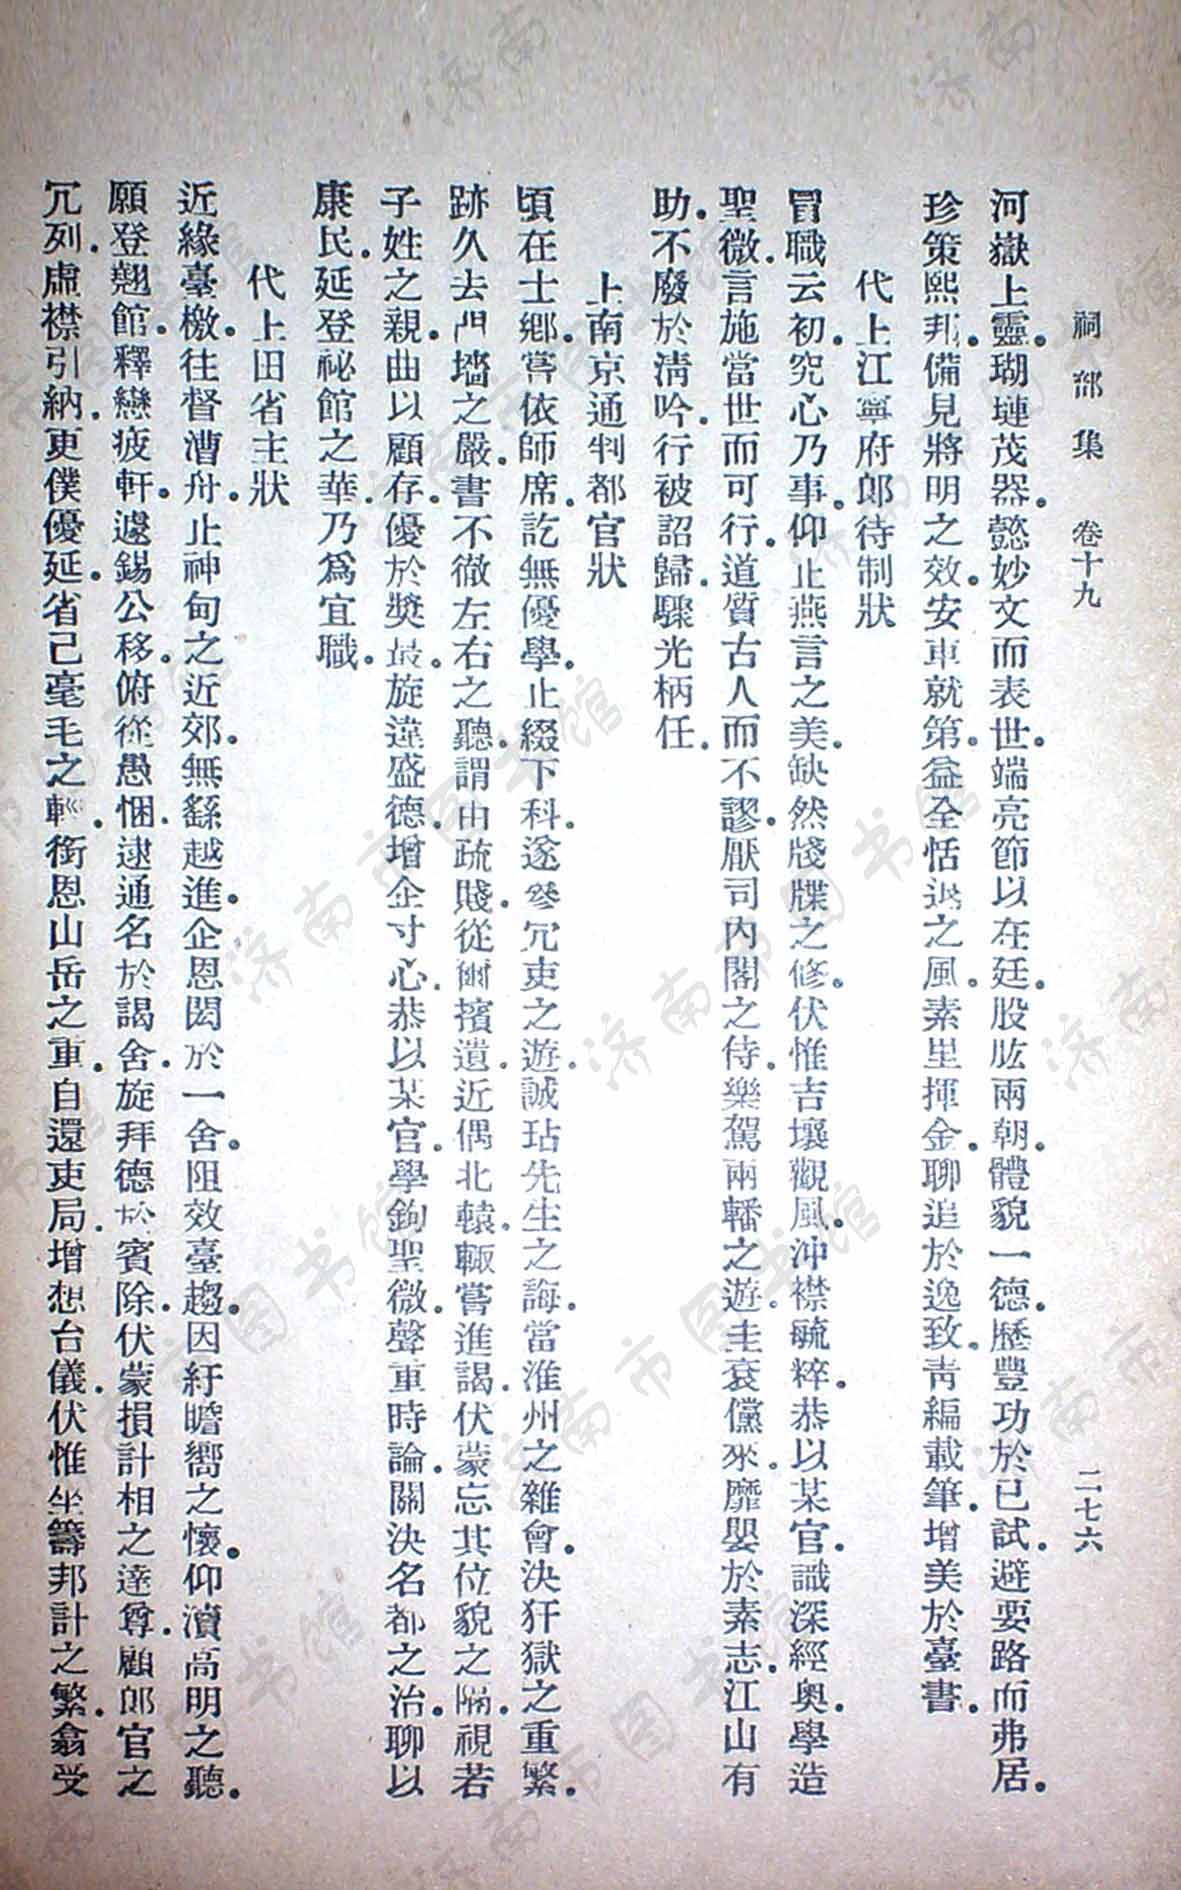 祠部集　卷十九　二七六
河嶽上靈．瑚璉茂器．懿妙文而表世．端亮節以在廷．股肱兩朝．體貌一德．歷豐功於已試．避要路而弗居．
珍策熙邦．備見將明之效．安車就第．益全恬退之風．素里揮金．聊追於逸致．靑編載筆．增美於臺書．
代上江寧府郎待制狀
冒職云初．究心乃事．仰止燕言之美．缺然牋牒之修．伏惟吉壤觀風．沖襟毓粹．恭以某官．識深經奧．學造
聖微．言施當世而可行．道質古人而不謬．厭司內閣之侍．樂駕兩轓之遊．圭袞儻來．靡嬰於素志．江山有
助．不廢於淸吟．行被詔歸．驟光柄任．
上南京通判都官狀
頃在士鄉．嘗依師席．訖無優學．止綴下科．遂參冗吏之遊．誠玷先生之誨．當淮州之雜會．決犴獄之重繁．
跡久去門墻之嚴．書不徹左右之聽．謂由疏賤．從爾擯遺．近偶北轅．輒嘗進謁．伏蒙忘其位貌之隔．視若
子姓之親．曲以顧存．優於獎最．旋違盛德．增企寸心．恭以某官．學鉤聖微．聲重時論．關決名都之治．聊以
康民．延登祕館之華．乃爲宜職．
代上田省主狀
近緣臺檄．往督漕舟．止神甸之近郊．無繇越進．企恩閎於一舍．阻效臺趨．因紆瞻嚮之懷．仰瀆高明之聽．
願登翹館．釋戀疲軒．遽錫公移．俯從愚悃．逮通名於謁舍．旋拜德於賓除．伏蒙損計相之達尊．顧郎官之
冗列．虛襟引納．更僕優延．省己毫毛之輕．銜恩山岳之重．自還吏局．增想台儀．伏惟坐籌邦計之繁．翕受